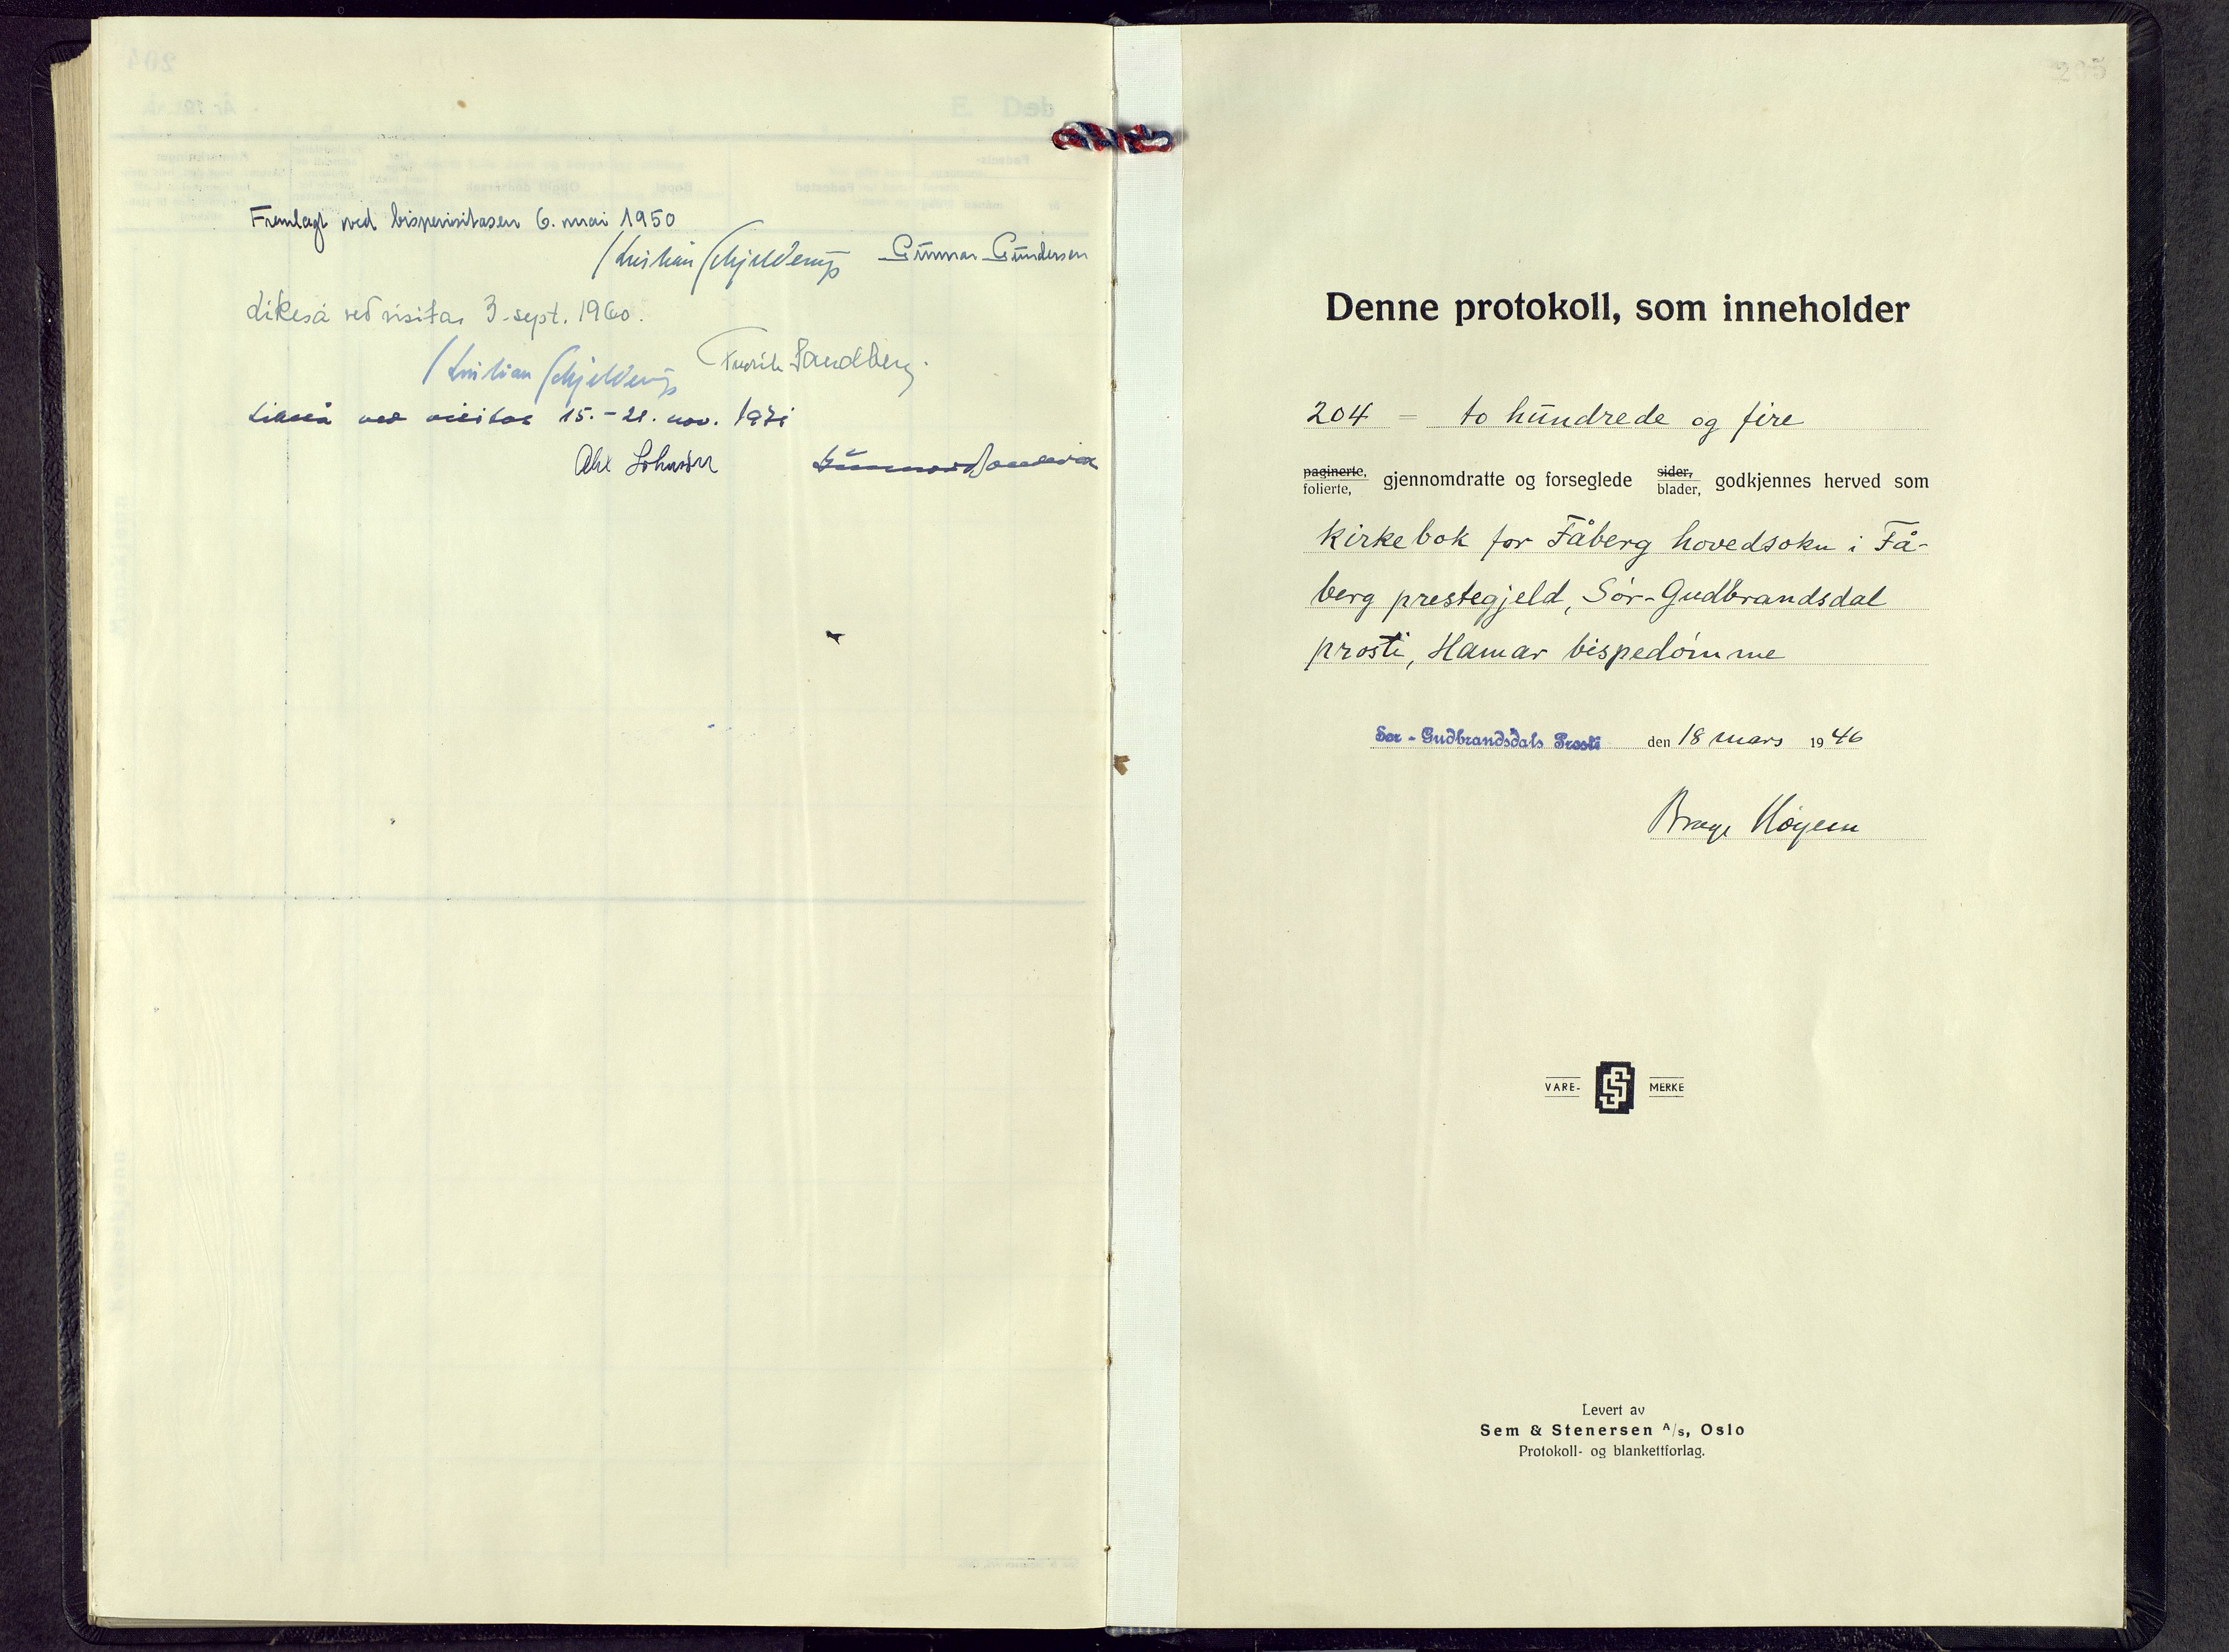 Fremlagt ved bispevisitasen 6. mai 1950
Kristian Schjelderup Gunnar Gundersen
Likeså ved visitas 3. sept. 1960.
Kristian Schjelderup Fredrik Sandberg.
Likeså ved visitas 15.-21. nov. 1971
Alex Johnson Gunnar
205
Denne protokoll, som inneholder
204 = to hundrede og fire
paginerte, folierte, gjennomdratte og forseglede sider, blader, godkjennes herved som
kirkebok for Fåberg hovedsokn i Få-
berg prestegjeld, Sør-Gudbrandsdal
prosti, Hamar bispedømme
Sør-Gudbrandsdals Prosti den 18 mars 1946
Brage Høyem
VARE- MERKE
Levert av
Sem & Stenersen A/s, Oslo
Protokoll- og blankettforlag.